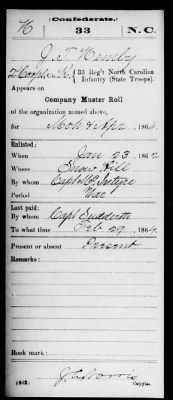 (Confederate.)
H 33 N.C.
J. T.
33 Reg't North Carolina
Infantry (State Troops).
Appears on
Company Muster Roll
of the organization named above,
for Mch & Apr, 1864
Enlisted:
When Jan 23, 1862
Where Snow Hill
By whom Capt McIntyre
Period War
Last paid:
By whom Capt Sudderth
To what time Feb 29, 1864
Present or absent Present
Remarks:
Book mark:
(642) J. C. Norris
Copyist.